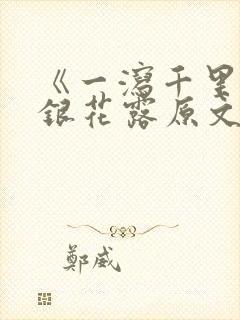 《一泻千里
银花露原文
郑威